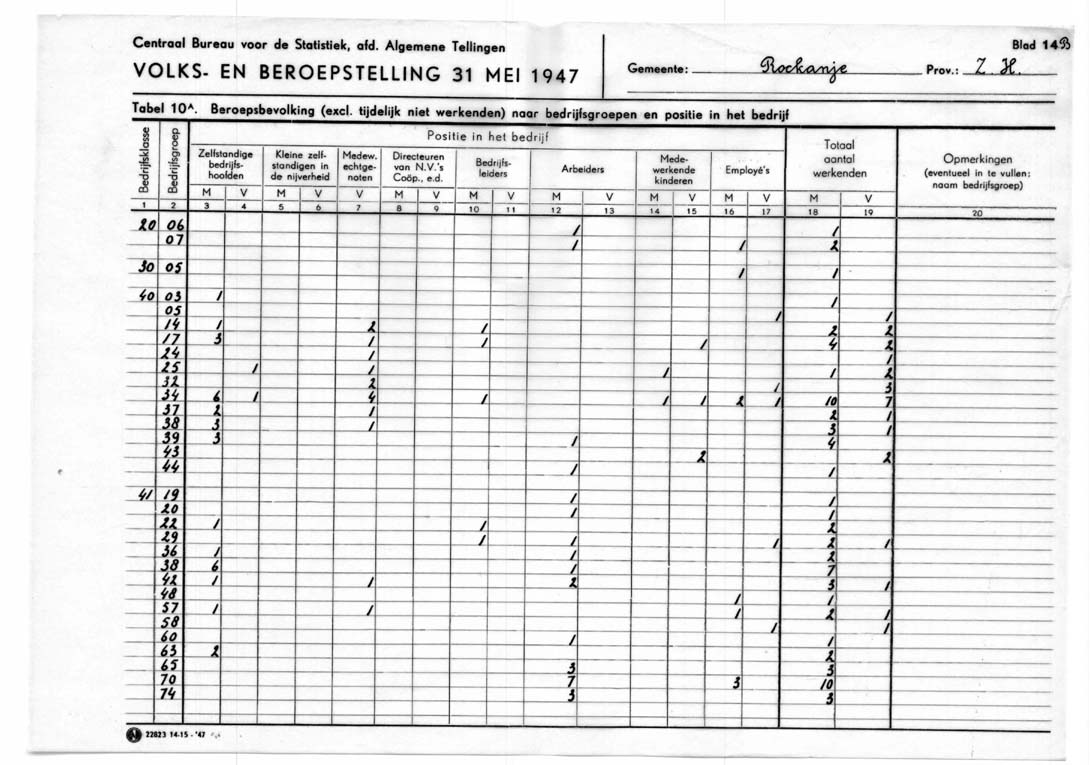 Centraal Bureau voor de Statistiek, afd. Algemene Tellingen
Blad 1493
VOLKS- EN BEROEPSTELLING 31 MEI 1947
Gemeente: Rockanje Prov.: Z.H.
Tabel 10ᴬ. Beroepsbevolking (excl. tijdelijk niet werkenden) naar bedrijfsgroepen en positie in het bedrijf
Bedrijfsklasse
Bedrijfsgroep
Positie in het bedrijf
Zelfstandige bedrijfs- hoolden
Kleine zelf- standigen in de nijverheid
Medew. echtge- noten
Directeuren van N.V.'s Coöp., e.d.
Bedrijfs- leiders
Arbeiders
Mede- werkende kinderen
Employé's
Totaal aantal werkenden
Opmerkingen (eventueel in te vullen: naam bedrijfsgroep)
M V M V V M V M V M V M V M V M V
1 2 3 4 5 6 7 8 9 10 11 12 13 14 15 16 17 18 19 20
20 06 1 1
07 1 1 2
30 05 1 1
40 03 1 1
05 1 1
14 1 2 1 2 2
17 3 1 1 1 4 2
24 1 1
25 1 1 1 1 2
32 2 1 3
34 6 1 4 1 1 1 2 1 10 7
37 2 1 2 1
38 3 1 3 1
39 3 1 4
43 2 2
44 1 1
41 19 1 1
20 1 1
22 1 1 2
29 1 1 1 2 1
36 1 1 2
38 6 1 7
42 1 1 2 3 1
48 1 1
57 1 1 1 2 1
58 1 1
60 1 1
63 2 2
65 3 3
70 7 3 10
74 3 3
22823 14-15 - '47